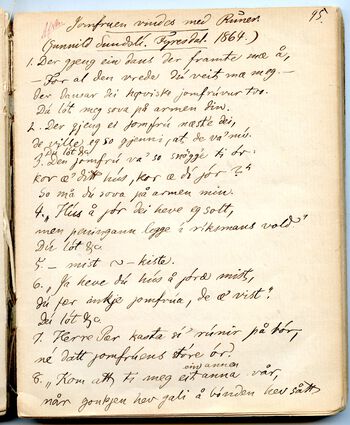 95.
Jomfruen vindes med Runer.
(Gunnild Sundsli. Fyresdal. 1864.)
1. Der gjeng ein dans der framte mæ å,
– For al den vrede du veit mæ meg. –
der dansar dei høviske jomfrúvur tvo.
Dú lót meg sova på armen din.
2. Der gjeng ei Jomfrú næste dei,
de ville eg so gjenni, at de va' mí.
Dú lót &c.
3. Den jomfrú va' so snøgge ti ór:
kor æ' ditt hús, kor æ dí jór?"
So må du sova på armen min.
4. "Hús å jór dei heve eg solt,
men peningann legge i riksmans vold"
Dú lót &c.
5. – mist ~ – kiste.
6. "Ja heve dú hús å jóræ mist,
dú fær inkje jomfrúa, de æ vist".
Dú lót &c.
7. Herre Per kasta sí' rúnir på bór,
né datt jomfruens stóre ór.
ein annen
8. "Kom att ti meg eit anna vår,
når gaukjen hev gali å bónden hev sått